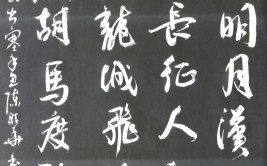 明月漢
長征人
龍城飛
胡馬度